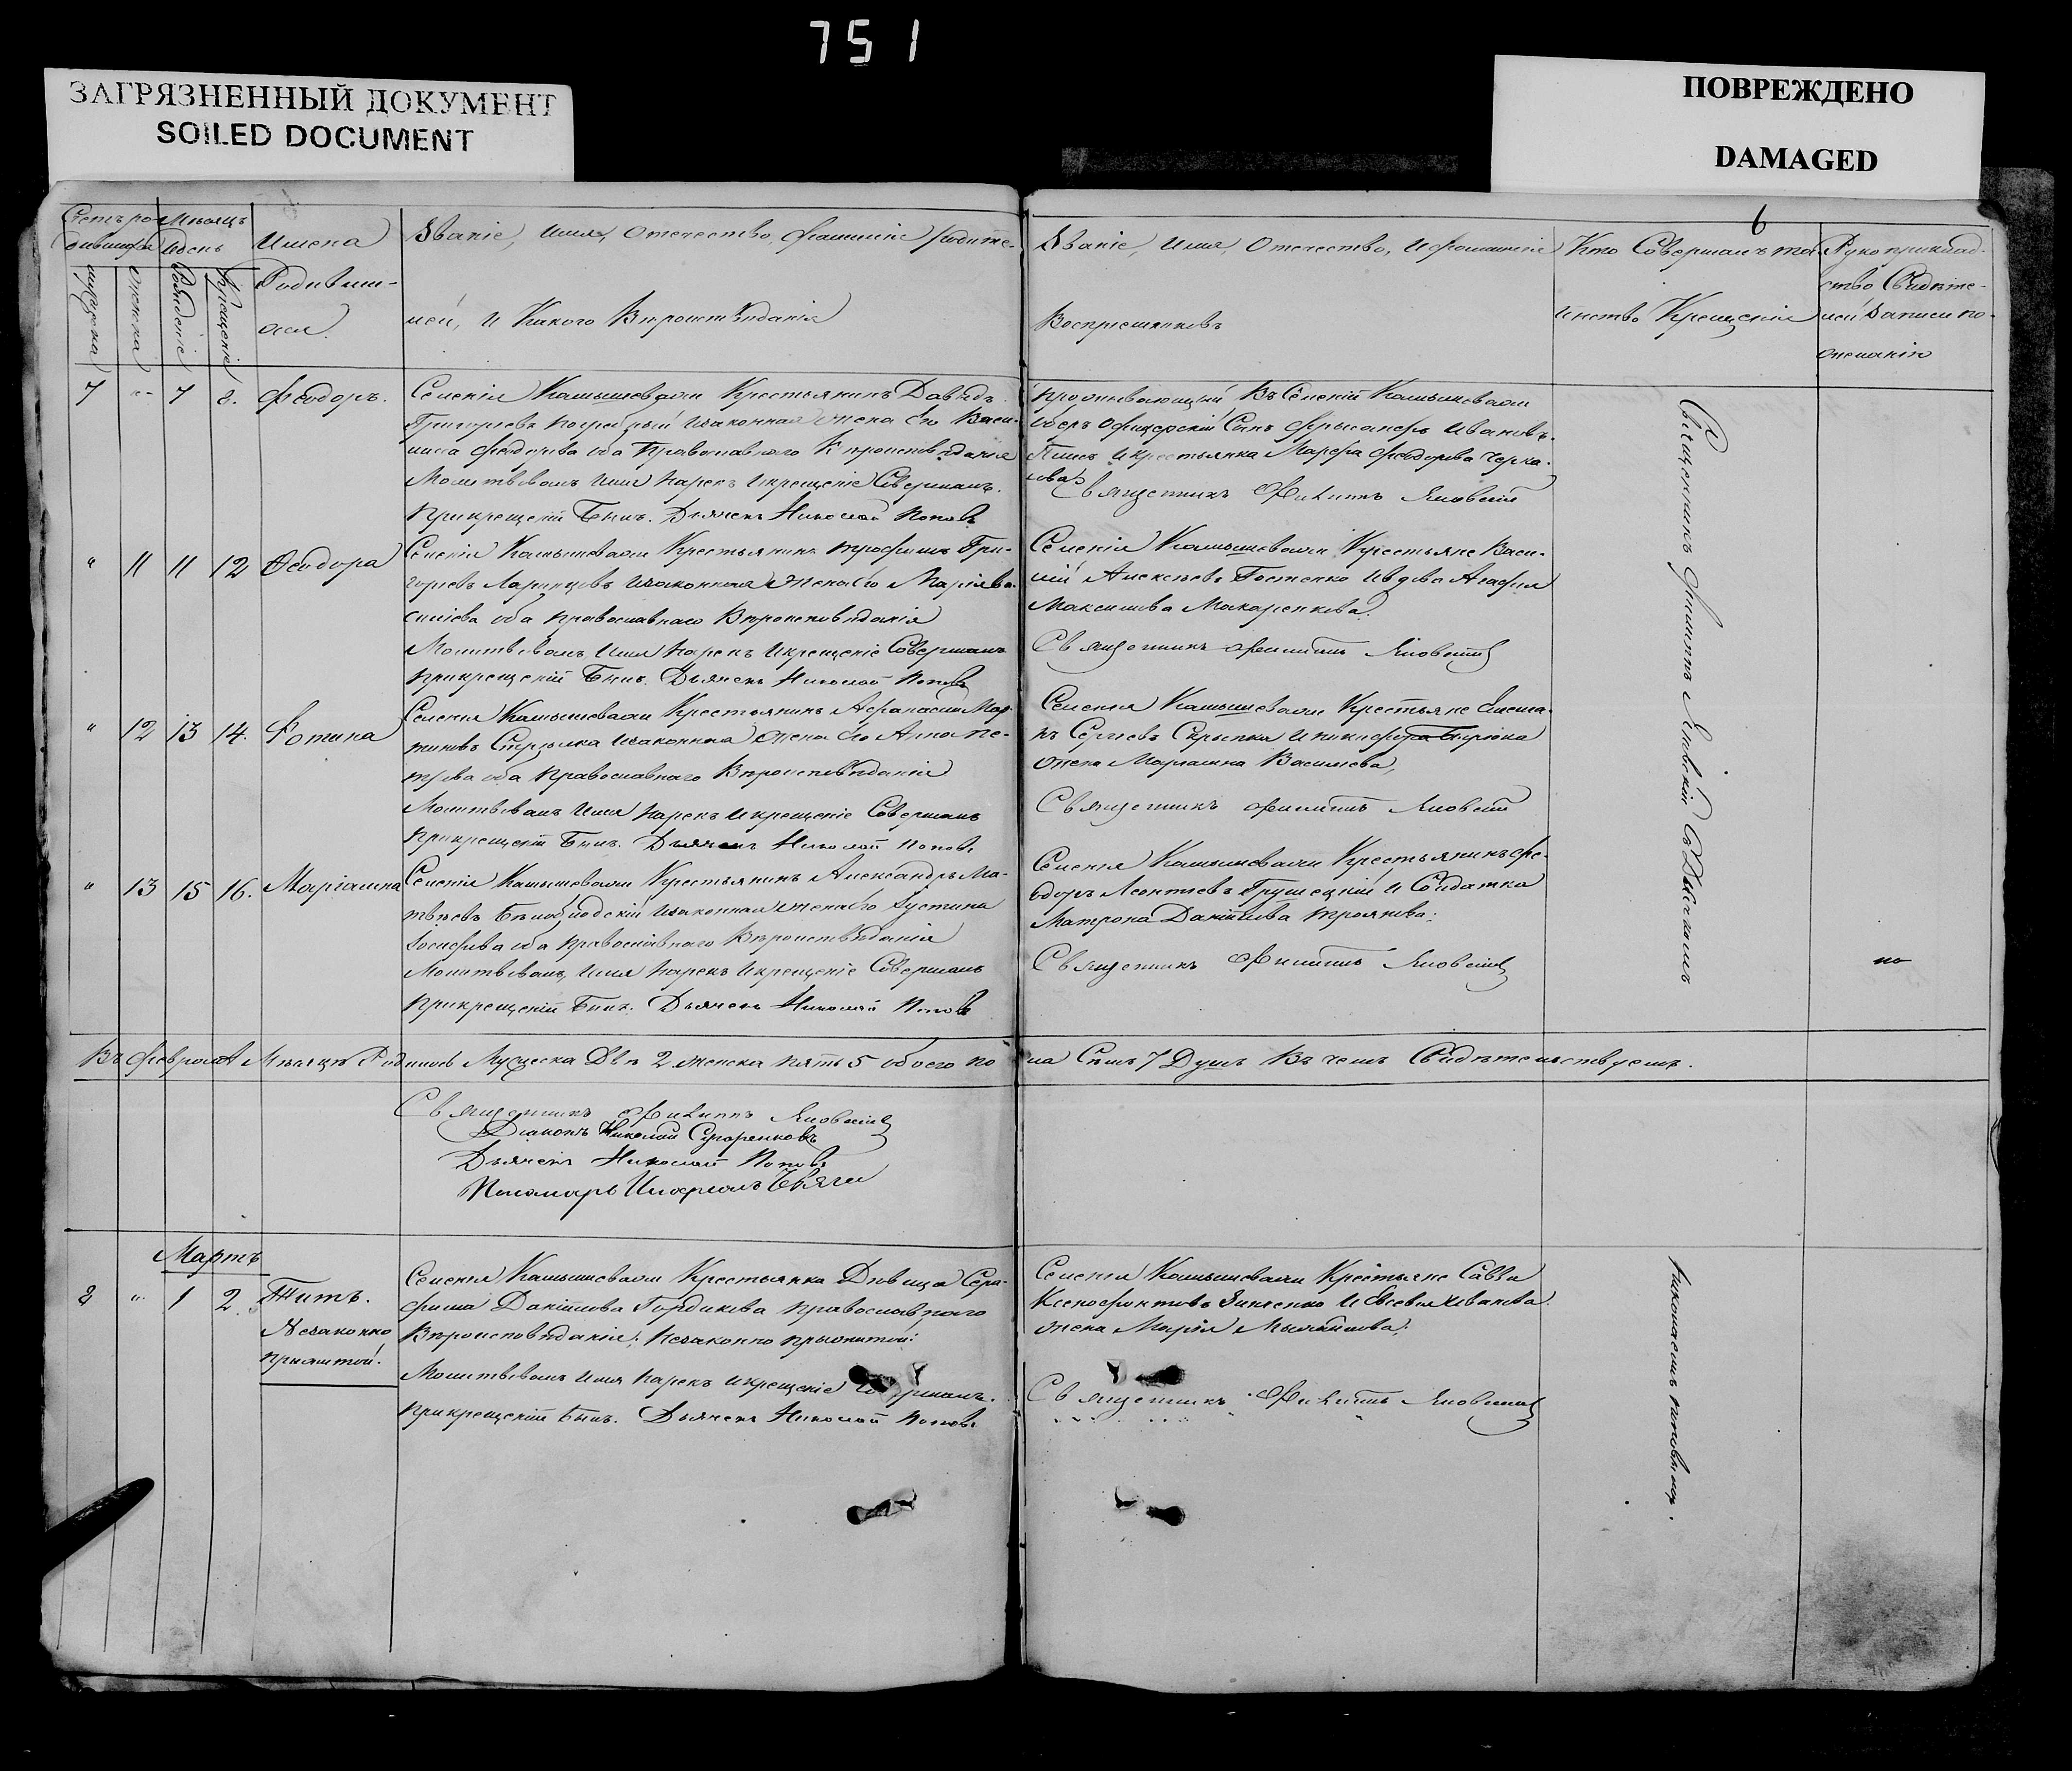 751
ЗАГРЯЗНЕННЫЙ ДОКУМЕНТ
SOILED DOCUMENT
ПОВРЕЖДЕНО
DAMAGED
6
Счетъ родившихся
Мѣсяцъ и день
мужеска
женска
Рожденіе
Крещеніе
Имена
Родивши-
хся.
Званіе, имя, отечество, фамиліе родите-
лей, и Какого Вѣроисповѣданія
Званіе, имя, отечество, и фамиліе
Воспріемниковъ
Кто Совершалъ та-
инство Крещенія
Рукоприклад-
ство Свидѣте-
лей Записи по
желанію
7 " 7 8. Феодоръ.
Селенія Камышевахи Крестьянинъ Давидъ
Григорьевъ и законная жена его Васи-
лиса Феодорова оба Православнаго Вѣроисповѣданія
Молитвовалъ имя нарекъ и крещеніе Совершалъ.
При крещеніи Былъ. Дьячекъ Николай Поповъ
проживающий Въ Селеніи Камышевахи
Оберъ Офицерскій Сынъ Ивановъ
и крестьянка Марфа Феодорова Черка-
сова:
Священникъ Филиппъ Яновскій
" 11 11 12 Феодора
Селенія Камышевахи Крестьянинъ Трофимъ Гри-
горьевъ и законная жена его Марія Ва-
силіева оба православнаго Вѣроисповѣданія
Молитвовалъ имя нарекъ и крещеніе Совершалъ
При крещеніи Былъ. Дьячекъ Николай Поповъ
Селенія Камышевахи Крестьяне Васи-
лій Алексѣевъ Гостенко и вдова Агафія
Максимова Макаренкова.
Священникъ Филиппъ Яновскій
" 12 13 14. Фотина
Селенія Камышевахи Крестьянинъ Афанасій Мар-
тиновъ и законная жена его Анна Пе-
трова оба Православнаго Вѣроисповѣданія
Молитвовалъ имя нарекъ и крещеніе Совершалъ
При крещеніи Былъ. Дьячекъ Николай Поповъ
Селенія Камышевахи Крестьяне
Сергѣевъ Скрыпка и Никифора Бирюка
жена Маріамна Василіева,
Священникъ Филиппъ Яновскій
" 13 15 16. Маріамна
Селенія Камышевахи Крестьянинъ Александръ Ма-
твѣевъ и законная жена его Іустина
Іосифова оба православнаго Вѣроисповѣданія
Молитвовалъ имя нарекъ и крещеніе Совершалъ
При крещеніи Былъ. Дьячекъ Николай Поповъ
Селенія Камышевахи Крестьянинъ Фе-
одоръ Леонтіевъ Грушецкій и Солдатка
Матрона Даніилова Троянова:
Священникъ Филиппъ Яновскій
Священникъ Филиппъ Яновскій съ Дьячкомъ
Въ Февралѣ Мѣсяцѣ Родилось Мужеска Двѣ 2 женска пять 5 обоего по
ла Сѣмъ 7 Душъ Въ чемъ Свидѣтельствуемъ.
Священникъ Филиппъ Яновскій
Діаконъ Николай
Дьячекъ Николай Поповъ
Пономарь
Мартъ
8 " 1 2. Титъ.
Незаконно
прижитой.
Селенія Камышевахи Крестьянка Дѣвица Сера-
фима Даніилова Гордикова православнаго
Вѣроисповѣданія; незаконно прижитой:
Молитвовалъ имя нарекъ и крещеніе Совершалъ.
При крещеніи Былъ. Дьячекъ Николай Поповъ
Селенія Камышевахи Крестьяне Савва
Ксенофонтовъ Зинченко и Иванова
жена Марія
Священникъ Филиппъ Яновскій
Николаемъ Поповымъ.